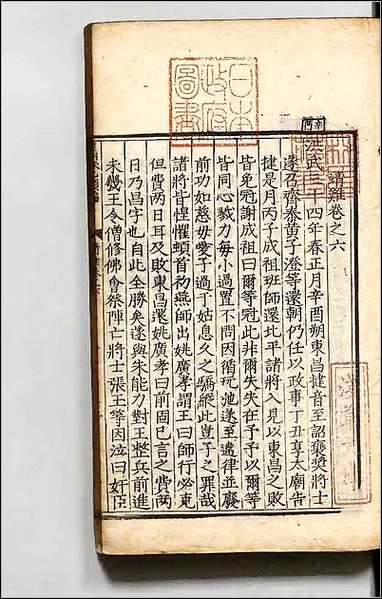 日本
政府
圖書
靖難卷之六
辛巳
洪武三十四年春正月辛酉朔東昌捷音至詔褒奬將士
遂召齊泰黃子澄等還朝仍任以政事丁丑享太廟告
捷是月丙子成祖班師還北平諸將入見以東昌之敗
皆免冠謝成祖曰爾等冠此非爾失失在予予以爾等
皆同心戮力每小過置不問因循玩弛遂至違律並廢
前功如慈母愛子過于姑息久之驕縱此豈子之罪哉
諸將皆惶懼頓首初燕師出姚廣孝謂王曰師行必克
但費兩日耳及敗東昌還姚廣孝曰前固已言之費兩
日乃昌字也自此全勝矣遂與朱能力對王整兵前進
未幾王令僧修佛會祭陣亡將士張王等因泣曰奸臣